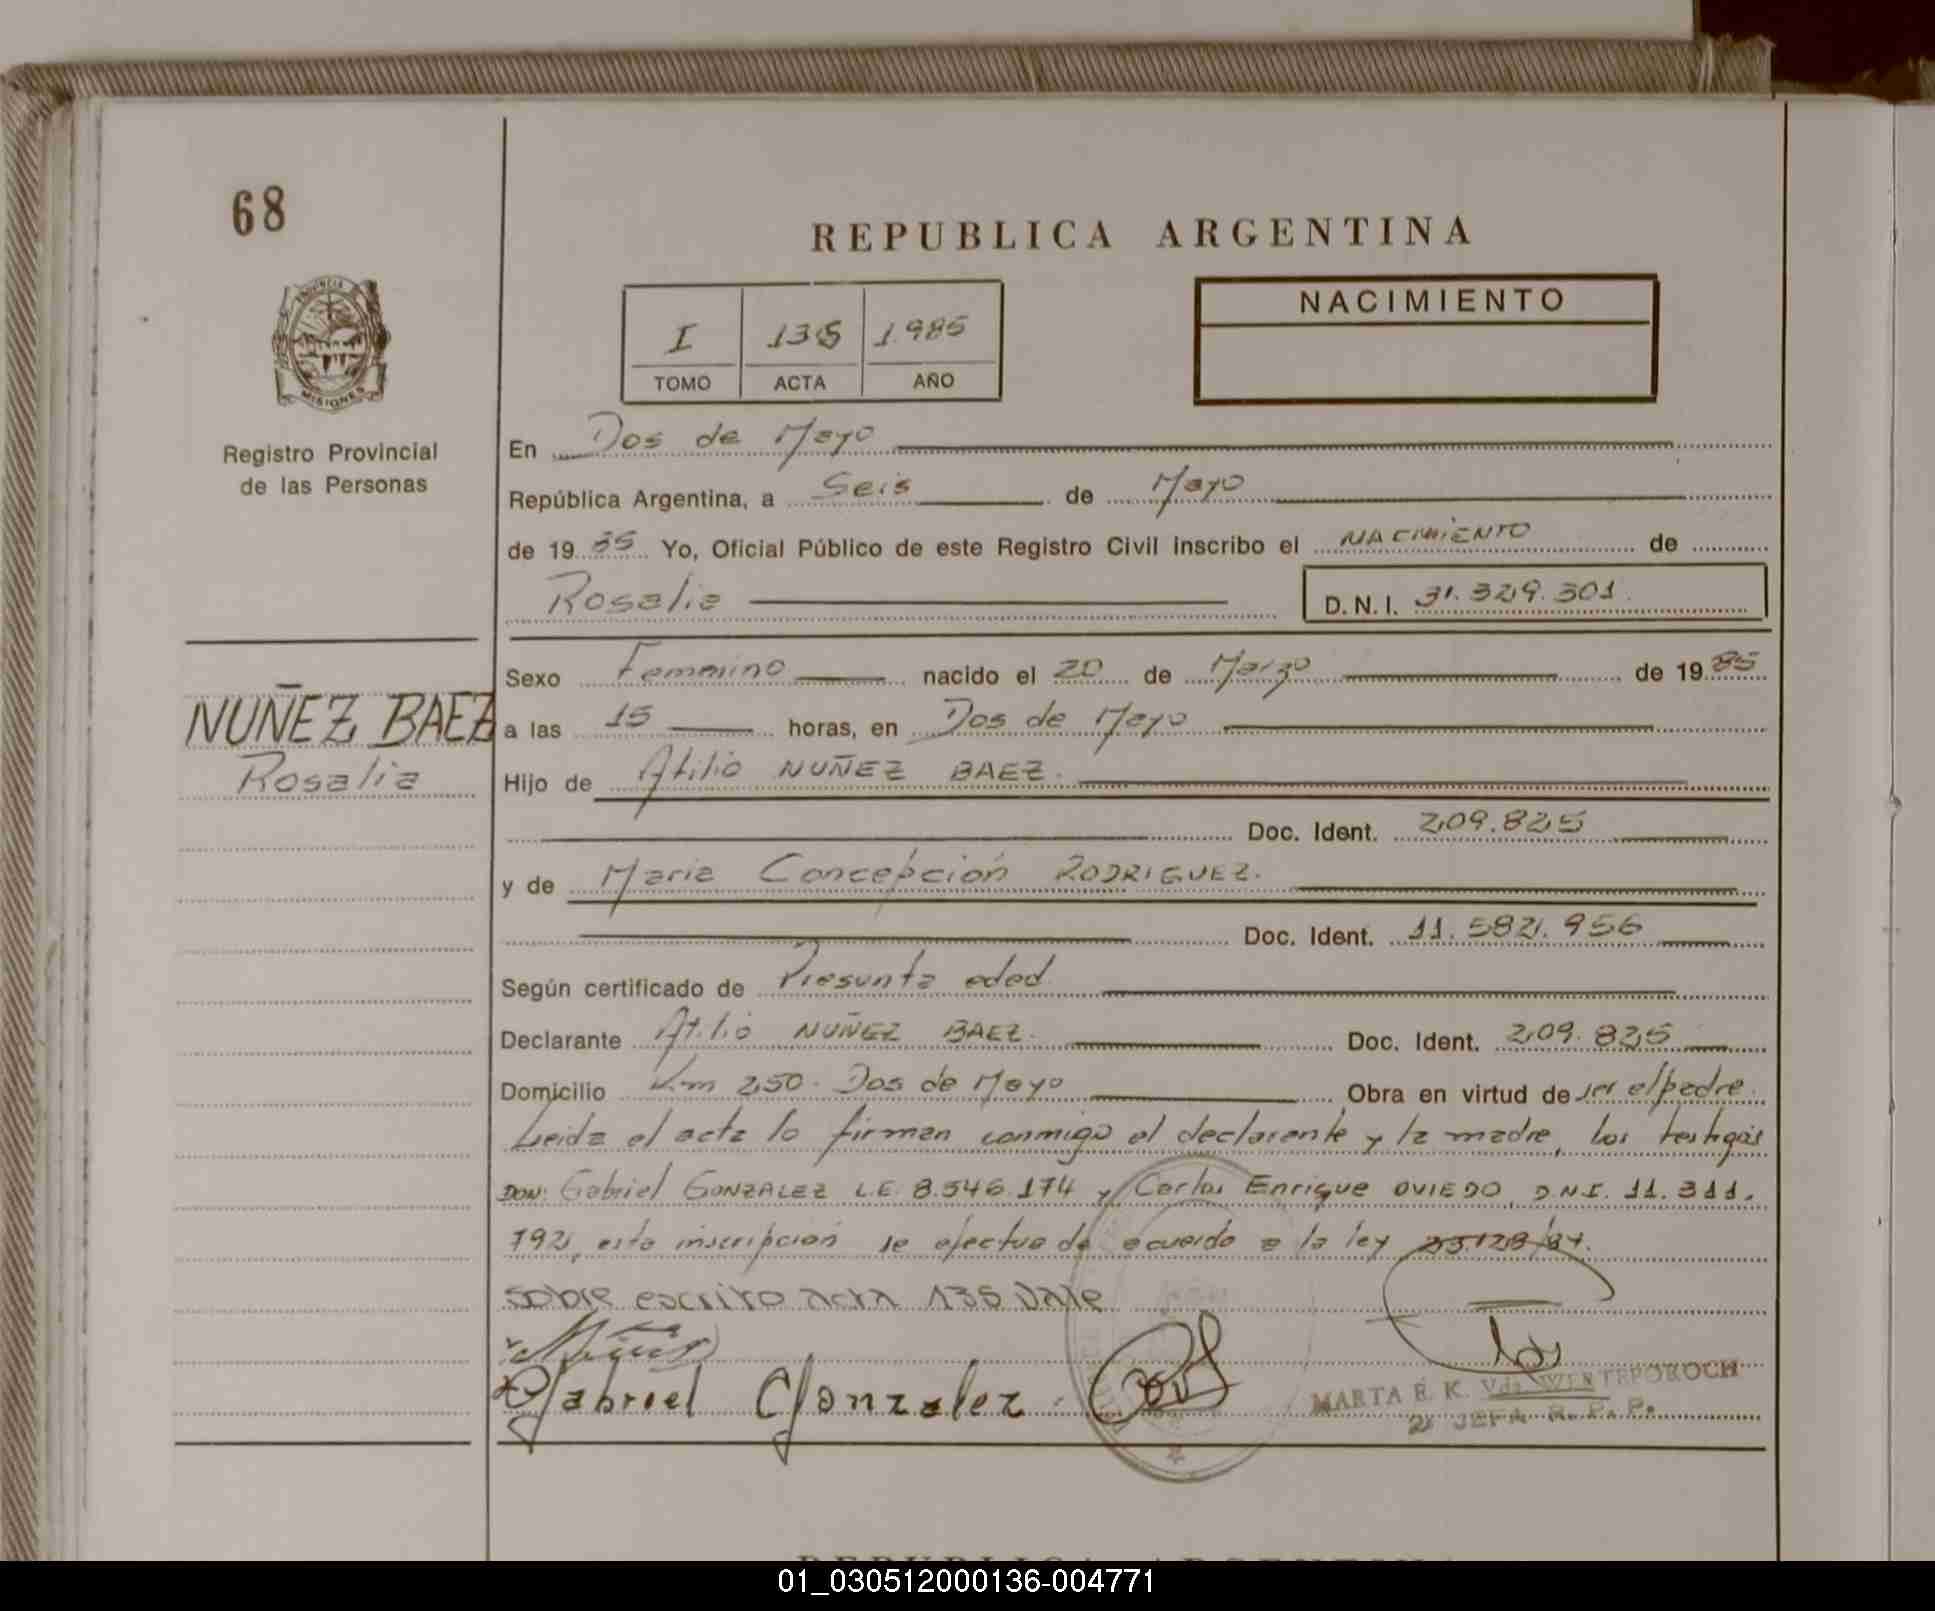 68
REPUBLICA ARGENTINA
PROVINCIA
MISIONES
Registro Provincial
de las Personas
I 135 1.985
TOMO ACTA AÑO
NACIMIENTO
En Dos de Mayo
República Argentina, a Seis de Mayo
de 19 85 Yo, Oficial Público de este Registro Civil inscribo el NACIMIENTO de
Rosalia D.N.I. 31.329.301.
NUÑEZ BAEZ
Rosalia
Sexo Femenino nacido el 20 de Marzo de 19 85
a las 15 horas, en Dos de Mayo
Hijo de Atilio NUÑEZ BAEZ.
Doc. Ident. 209.825
y de Maria Concepción RODRIGUEZ.
Doc. Ident. 11.582.956
Según certificado de Presunta edad
Declarante Atilio NUÑEZ BAEZ. Doc. Ident. 209.825
Domicilio Km 250. Dos de Mayo Obra en virtud de ser el padre.
Leida el acta lo firman conmigo el declarante y la madre, los testigos
DON: Gabriel GONZALEZ L.E. 8.546.174 y Carlos Enrique OVIEDO, D.N.I. 11.311.
792, esta inscripción se efectua de acuerdo a la ley 23.128/84.
sobre escrito acta 135 Vale
Gabriel Gonzalez
MARTA E. K. Vda. WINTEPOROCH
JEFA R. P. P.
REPUBLICA ARGENTINA
01_030512000136-004771